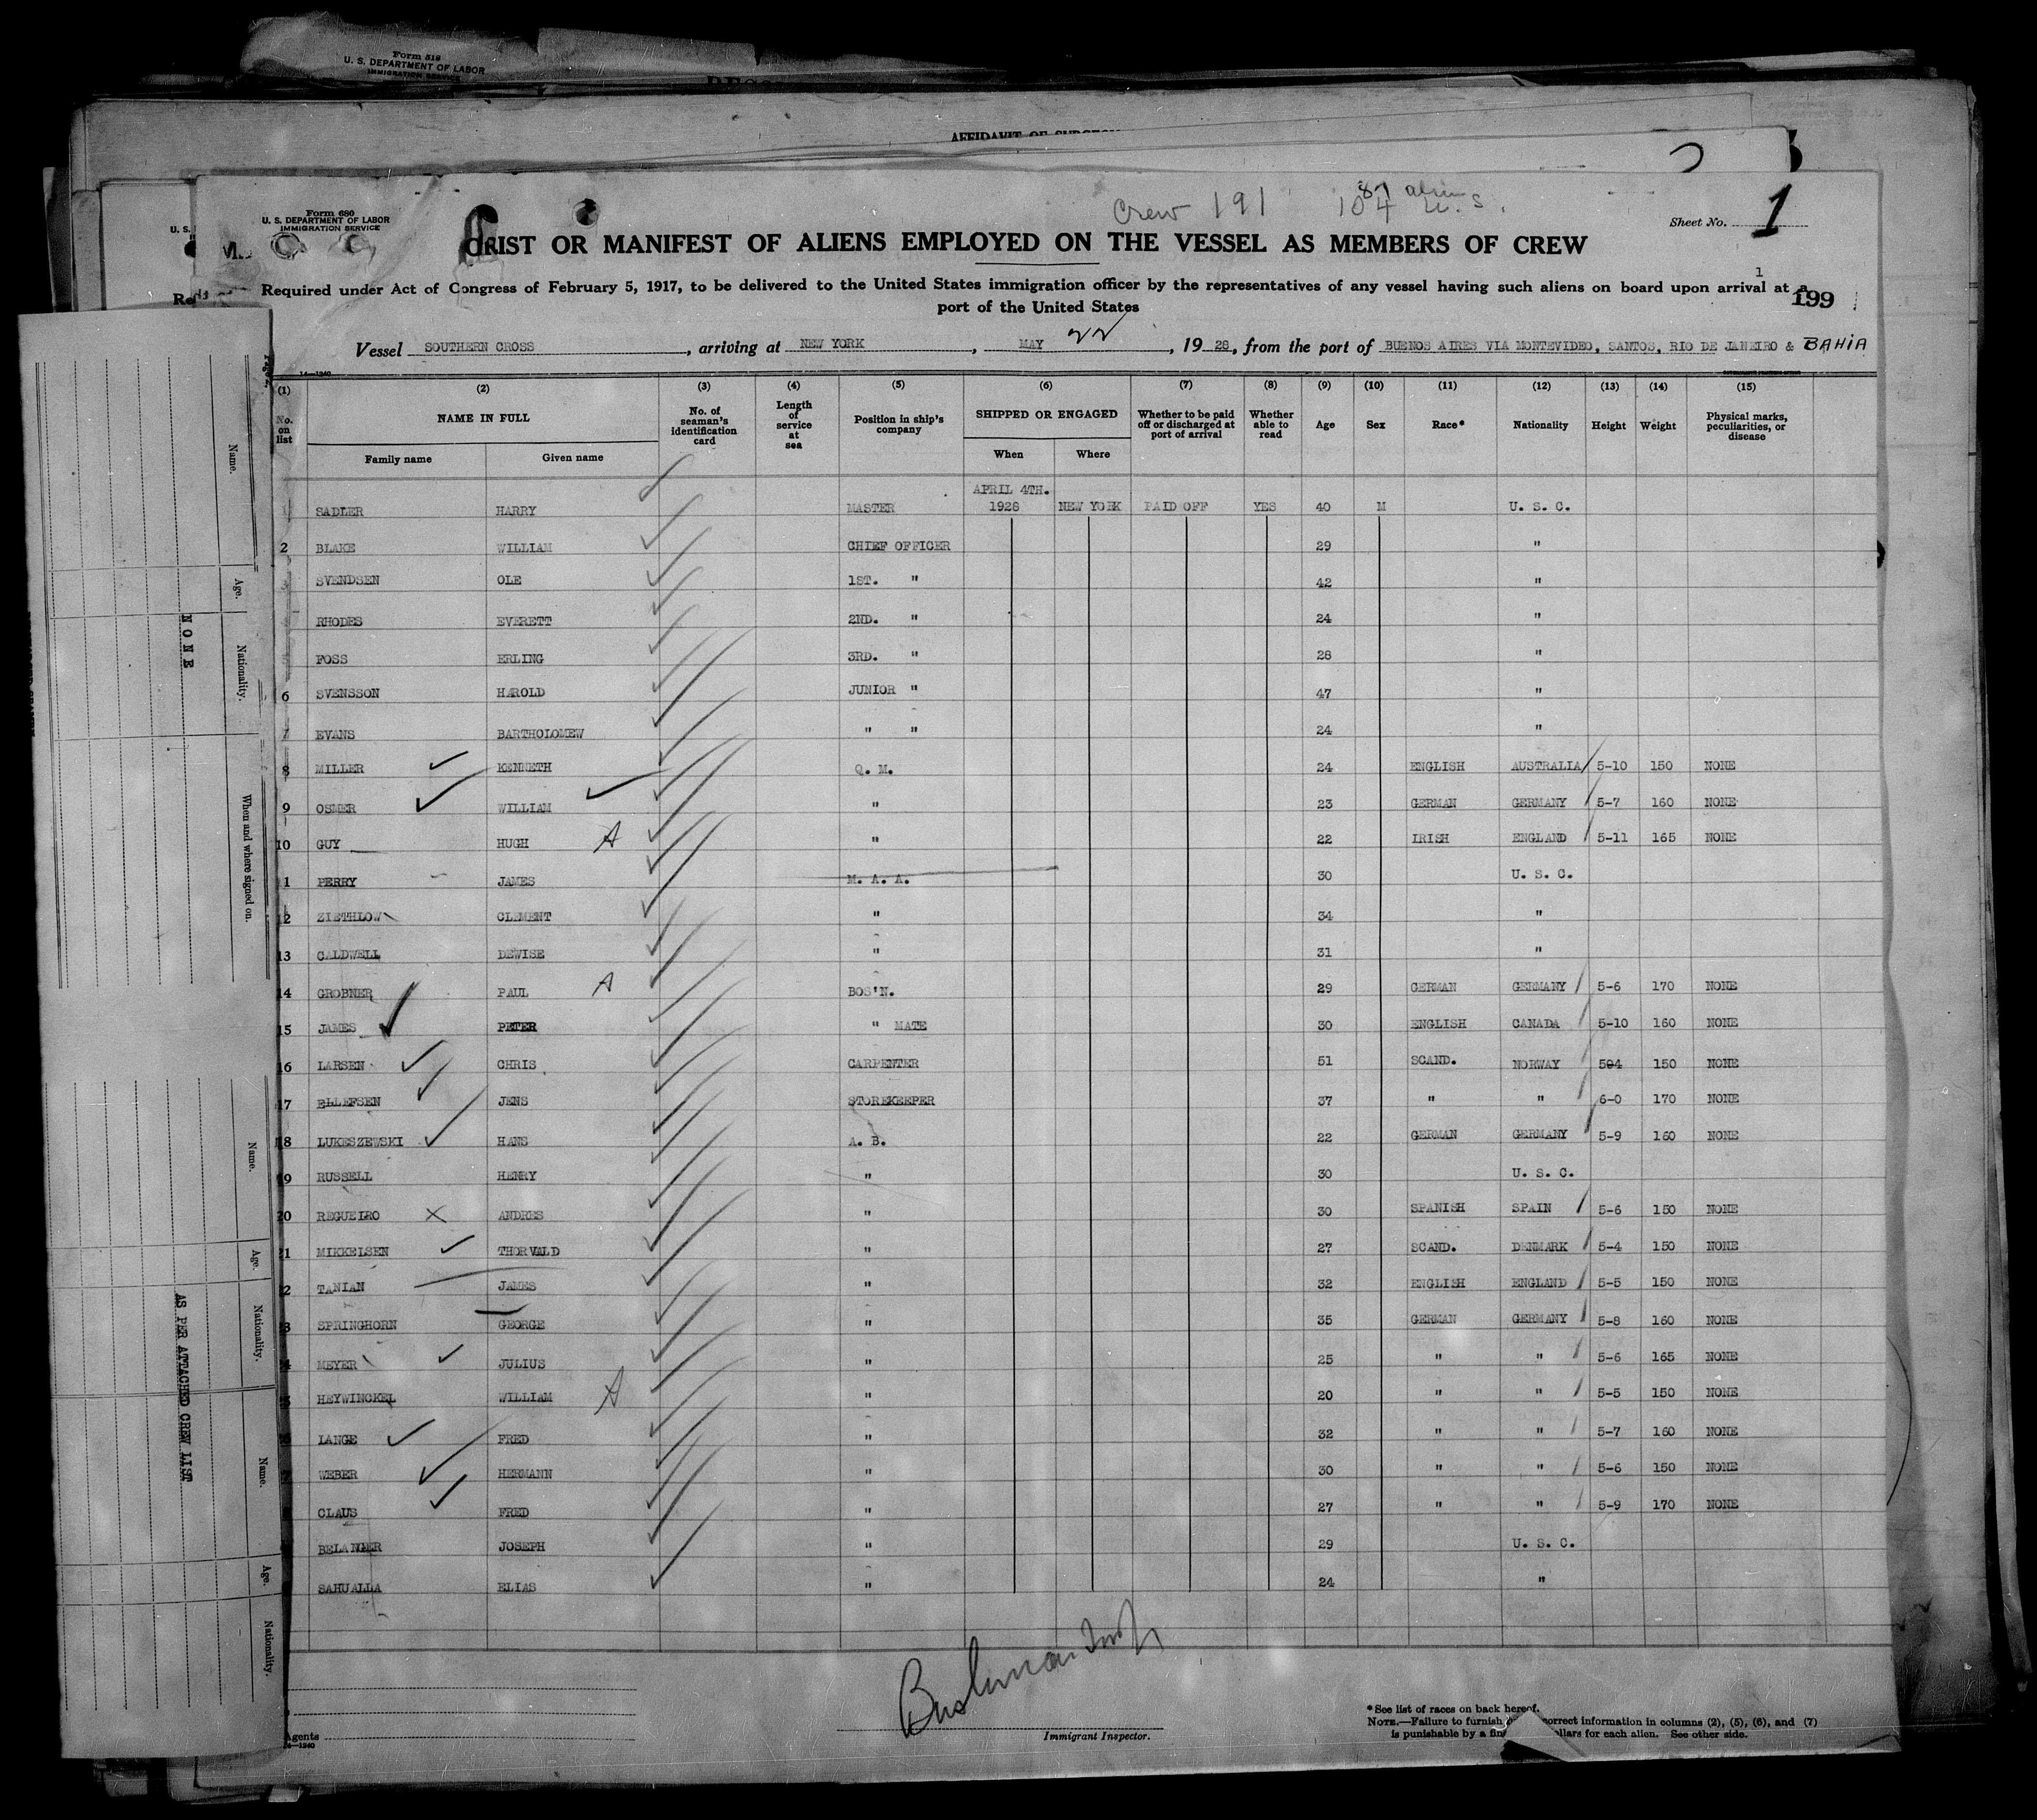 Form 519
U. S. DEPARTMENT OF LABOR
IMMIGRATION SERVICE
AFFIDAVIT OF SURGEON
Crew 191 87 aliens
104 U. S.
Form 680
U. S. DEPARTMENT OF LABOR
IMMIGRATION SERVICE
Sheet No. 1
LIST OR MANIFEST OF ALIENS EMPLOYED ON THE VESSEL AS MEMBERS OF CREW
1
Required under Act of Congress of February 5, 1917, to be delivered to the United States immigration officer by the representatives of any vessel having such aliens on board upon arrival at a
port of the United States
199
Vessel SOUTHERN CROSS, arriving at NEW YORK, MAY 22, 1928, from the port of BUENOS AIRES VIA MONTEVIDEO, SANTOS, RIO DE JANEIRO & BAHIA
14—1240
(1) (2) (3) (4) (5) (6) (7) (8) (9) (10) (11) (12) (13) (14) (15)
No. on list NAME IN FULL No. of seaman's identification card Length of service at sea Position in ship's company SHIPPED OR ENGAGED Whether to be paid off or discharged at port of arrival Whether able to read Age Sex Race* Nationality Height Weight Physical marks, peculiarities, or disease
Family name Given name When Where
1 SADLER HARRY MASTER APRIL 4TH. 1928 NEW YORK PAID OFF YES 40 M U. S. C.
2 BLAKE WILLIAM CHIEF OFFICER 29 "
3 SVENDSEN OLE 1ST. " 42 "
RHODES EVERETT 2ND. " 24 "
5 FOSS ERLING 3RD. " 28 "
6 SVENSSON HAROLD JUNIOR " 47 "
7 EVANS BARTHOLOMEW " " 24 "
8 MILLER KENNETH Q. M. 24 ENGLISH AUSTRALIA 5-10 150 NONE
9 OSMER WILLIAM " 23 GERMAN GERMANY 5-7 160 NONE
10 GUY HUGH A " 22 IRISH ENGLAND 5-11 165 NONE
11 PERRY JAMES M. A. A. 30 U. S. C.
12 ZIETHLOW CLEMENT " 34 "
13 CALDWELL DEWISE " 31 "
14 GROBNER PAUL A BOS'N. 29 GERMAN GERMANY 5-6 170 NONE
15 JAMES PETER " MATE 30 ENGLISH CANADA 5-10 160 NONE
16 LARSEN CHRIS. CARPENTER 51 SCAND. NORWAY 504 150 NONE
17 ELLEFSEN JENS STOREKEEPER 37 " " 6-0 170 NONE
18 LUKESZEWSKI HANS A. B. 22 GERMAN GERMANY 5-9 160 NONE
19 RUSSELL HENRY " 30 U. S. C.
20 REGUEIRO X ANDRES " 30 SPANISH SPAIN 5-6 150 NONE
21 MIKKELSEN THORVALD " 27 SCAND. DENMARK 5-4 150 NONE
22 TANIAN JAMES " 32 ENGLISH ENGLAND 5-5 150 NONE
23 SPRINGHORN GEORGE " 35 GERMAN GERMANY 5-8 160 NONE
24 MEYER JULIUS " 25 " " 5-6 165 NONE
25 HEYWINCKEL WILLIAM A " 20 " " 5-5 150 NONE
26 LANGE FRED " 32 " " 5-7 160 NONE
27 WEBER HERMANN " 30 " " 5-6 150 NONE
CLAUS FRED " 27 " " 5-9 170 NONE
BELANGER JOSEPH " 29 U. S. C.
SAHUALLA ELIAS " 24 "
Agents
14—1240
Immigrant Inspector.
*See list of races on back hereof.
NOTE.—Failure to furnish correct information in columns (2), (5), (6), and (7)
is punishable by a fine dollars for each alien. See other side.
Name.
Age.
Nationality.
When and where signed on.
NONE
Name.
Age.
Nationality.
Name.
Age.
Nationality.
AS PER ATTACHED CREW LIST